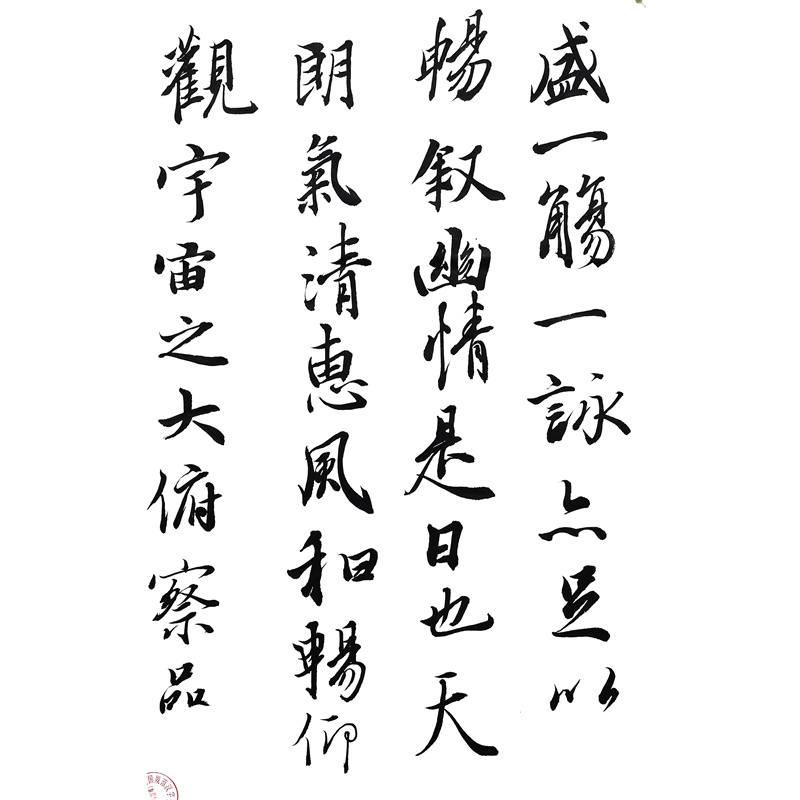 盛一觴一詠亦足以
暢叙幽情是日也天
朗氣清惠風和暢仰
觀宇宙之大俯察品